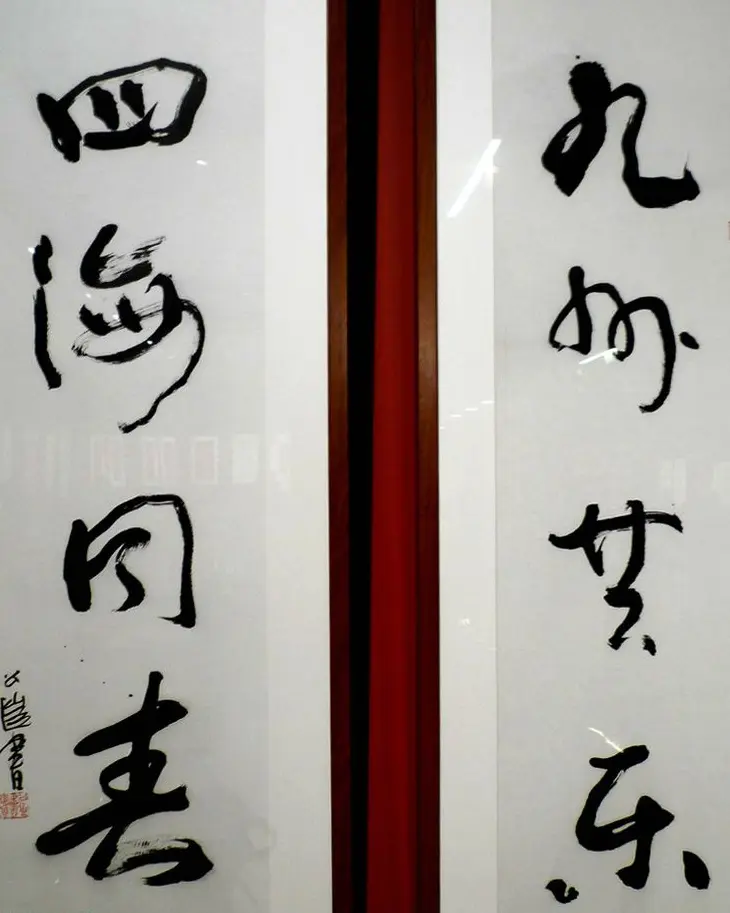 九州共乐
四海同春